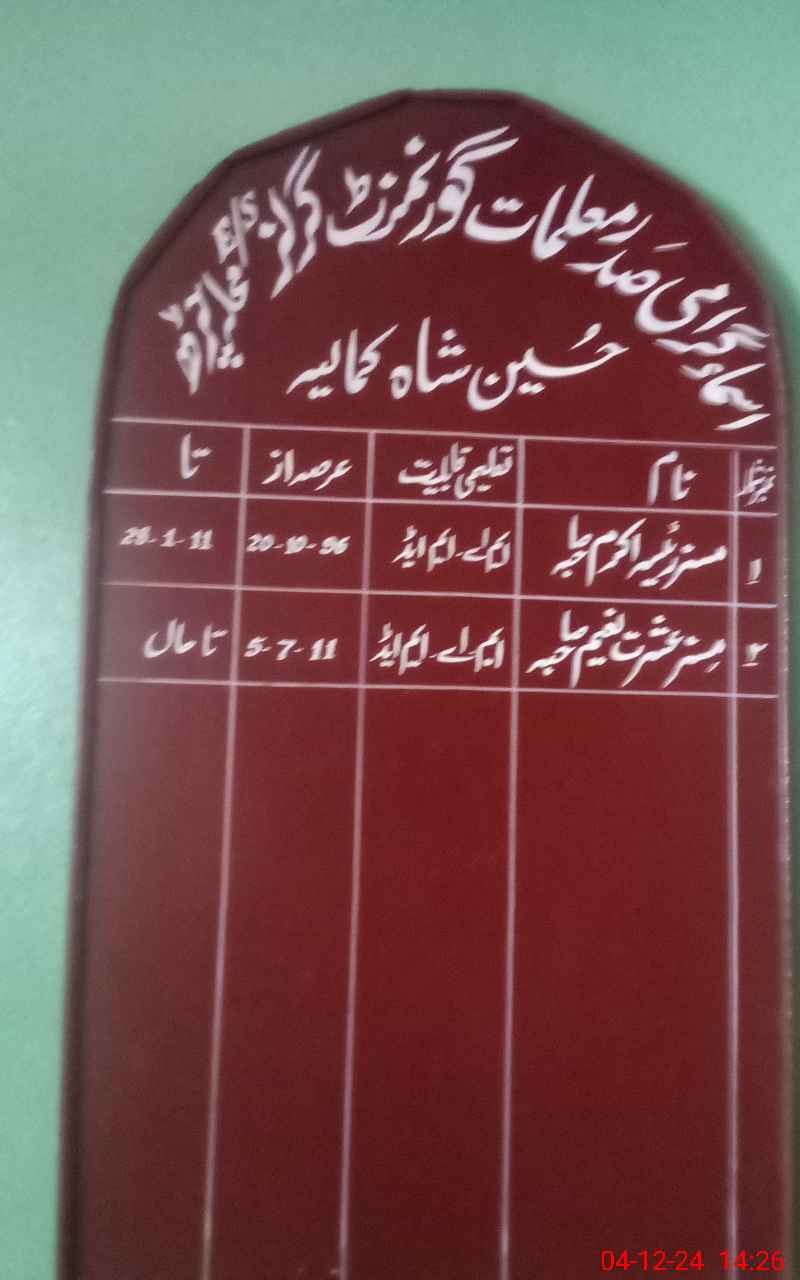 اسماءِ گرامی صَدر معلمات گورنمنٹ گرلز E/S محلہ
حُسین شاہ کمالیہ
نمبر شمار نام تعلیمی قابلیت عرصہ از تا
۱ مسز رئیسہ اکرم صاحبہ ایم اے۔ ایم ایڈ 20-10-96 28-1-11
۲ مسز عشرت نعیم صاحبہ ایم اے۔ ایم ایڈ 5-7-11 تا حال
04-12-24 14:26